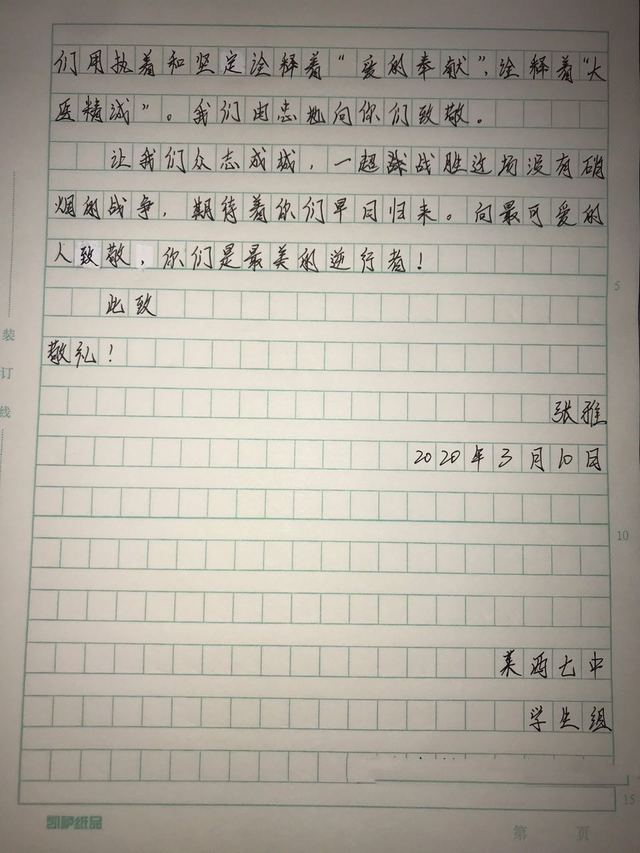 们用执着和坚定诠释着“爱的奉献”，诠释着“大
医精诚”。我们由忠地向你们致敬。
让我们众志成城，一起战胜这场没有硝
烟的战争，期待着你们早日归来。向最可爱的
人致敬，你们是最美的逆行者！
此致
敬礼！
张雅
2020年3月10日
莱西七中
学生组
装
订
线
5
10
15
凯萨纸品
第 页